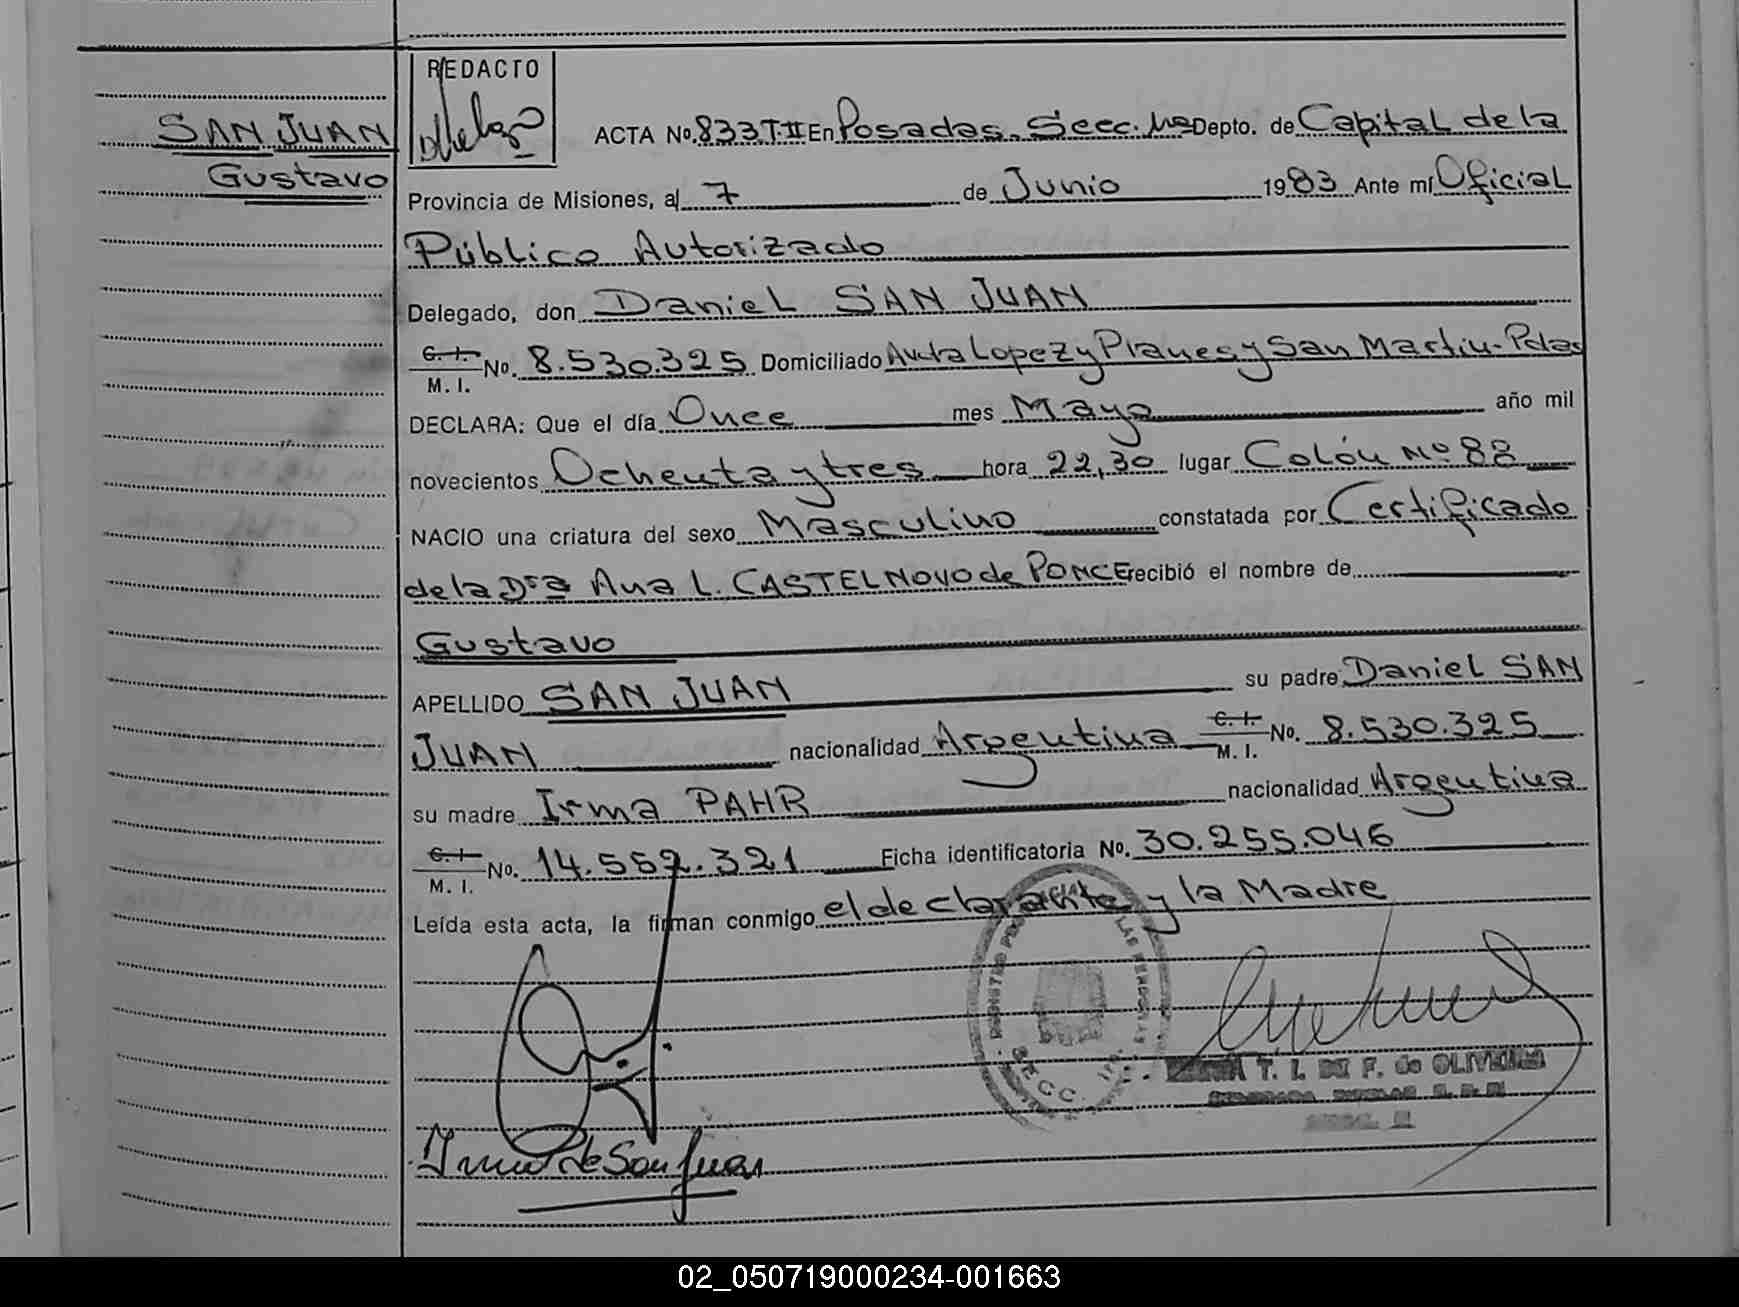 REDACTO
SAN JUAN
Gustavo
ACTA No. 833 T. II En Posadas. Secc. Depto. de Capital de la
Provincia de Misiones, al 7 de Junio 1983 Ante mí Oficial
Público Autorizado
Delegado, don Daniel SAN JUAN
C. I.
M. I. No. 8.530.325 Domiciliado Avda Lopez y Planes y San Martin - Pdas
DECLARA: Que el día Once mes Mayo año mil
novecientos Ochenta y tres hora 22,30 lugar Colón No 88
NACIO una criatura del sexo Masculino constatada por Certificado
de la Dra Ana L. CASTELNOVO de PONCE recibió el nombre de
Gustavo
APELLIDO SAN JUAN su padre Daniel SAN
JUAN nacionalidad Argentina C. I. M. I. No. 8.530.325
su madre Irma PAHR nacionalidad Argentina
C. I.
M. I. No. 14.552.321 Ficha identificatoria No. 30.255.046
Leída esta acta, la firman conmigo el declarante y la Madre
T. I. DE F. de OLIVEIRA
SECC.
Irma P de San Juan
02_050719000234-001663